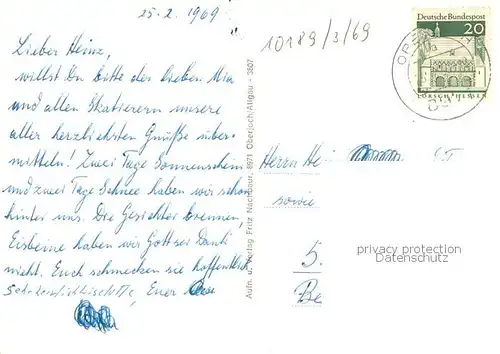 25.2.1969
10189/3/69
Lieber Heinz,
willst Du bitte der lieben Mia
und allen Skatierern unsere
aller herzlichsten Grüße über-
mitteln! Zwei Tage Sonnenschein
und zwei Tage Schnee haben wir schon
hinter uns. Die Gesichter brennen,
Eisbeine haben wir Gott sei Dank
nicht. Euch schmecken sie hoffentlich
Euer
Aufn. u. Verlag Fritz Nachbaur, 8971 Oberjoch/Allgäu - 3807
Deutsche Bundespost
20
LORSCH HESSEN
Herrn Hei
sowie
5.
Be
privacy protection
Datenschutz